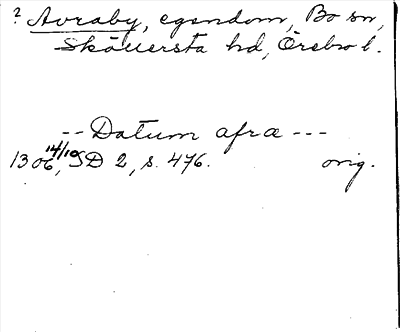 ? Avraby, egendom, Bo sn,
Skyllersta hd, Örebro l.
-- Datum afræ ---
1306 14/10, SD 2, s. 476. orig.